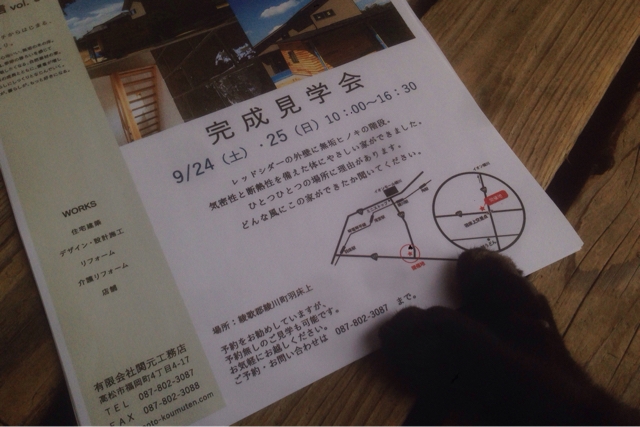 vol.
完成見学会
9/24（土）・25（日）10：00〜16：30
レッドシダーの外壁に無垢ヒノキの階段、
気密性と断熱性を備えた体にやさしい家ができました。
ひとつひとつの場所に理由があります。
どんな風にこの家ができたか聞いてください。
WORKS
住宅建築
デザイン・設計施工
リフォーム
介護リフォーム
店舗
場所：綾歌郡綾川町羽床上
予約をお勧めしていますが、
予約無しのご見学も可能です。
お気軽にお越しください。
ご予約・お問い合わせは 087-802-3087 まで。
有限会社関元工務店
高松市福岡町4丁目4-17
TEL 087-802-3087
FAX 087-802-3088
oto-koumuten.com